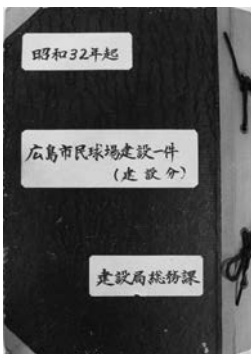 昭和32年起
広島市民球場建設一件
(建設分)
建設局総務課